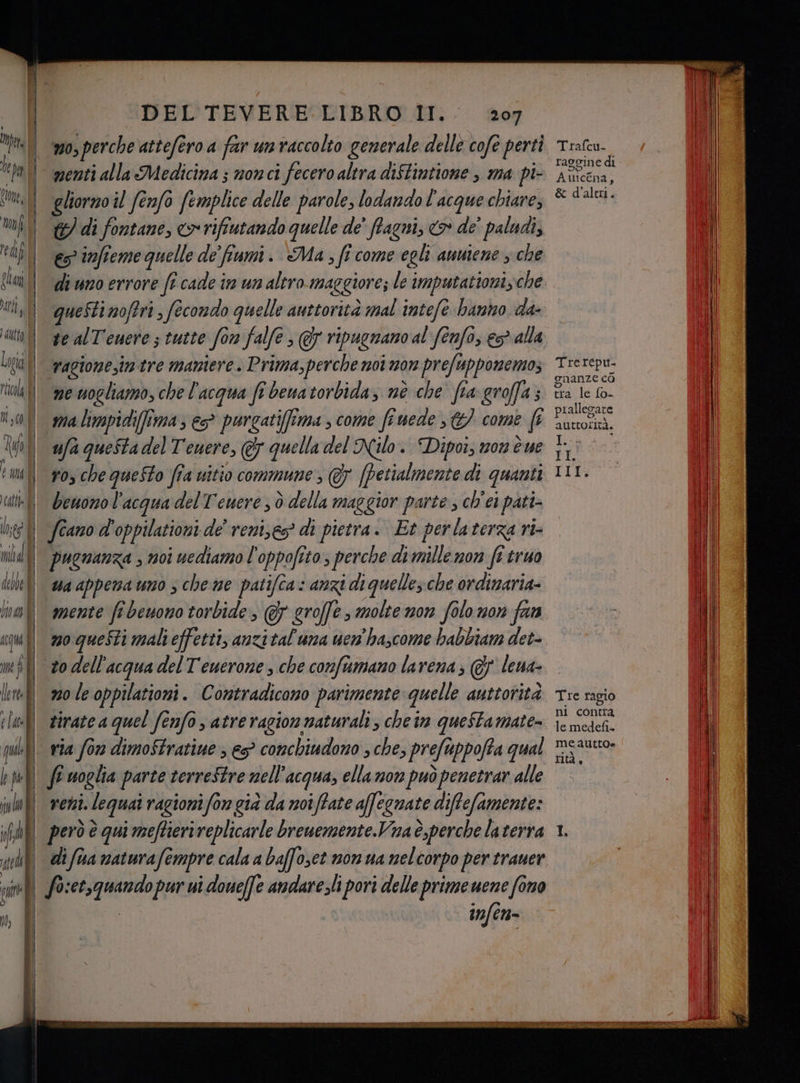 DEL TEVERE LIBRO II. 207
no, perche atteſero a far un raccolto generale delle coſe perti
nenti alla Medicina; non ci fecero altra diſtintione, ma pi-
gliorno il ſenſo ſemplice delle parole, lodando l'acque chiare,
& di fontane, & rifiutando quelle de' ſtagni, & de' paludi,
& inſieme quelle de' fiumi. Ma, ſi come egli auuiene, che
di uno errore ſi cade in un altro maggiore; le imputationi, che
queſti noſtri, ſecondo quelle auttorità mal inteſe hanno da-
te al Teuere; tutte ſon falſe, & ripugnano al ſenſo, & alla
ragione, in tre maniere. Prima, perche noi non preſupponemo,
ne uogliamo, che l'acqua ſi beua torbida, nè che ſia groſſa;
ma limpidiſſima, & purgatiſſima, come ſi uede, & come ſi
uſa queſta del Teuere, & quella del Nilo. Dipoi, non è ue
ro, che queſto ſia uitio commune, & ſpetialmente di quanti
beuono l'acqua del Teuere, ò della maggior parte, ch'ei pati-
ſcano d'oppilationi de' reni, & di pietra. Et per la terza ri-
pugnanza, noi uediamo l'oppoſito; perche di mille non ſi truo
ua appena uno, che ne patiſca: anzi di quelle, che ordinaria-
mente ſi beuono torbide, & groſſe, molte non ſolo non fan
no queſti mali effetti, anzi tal'una uen'ha, come habbiam det-
to dell'acqua del Teuerone, che conſumano la rena, & leua-
no le oppilationi. Contradicono parimente quelle auttorità
tirate a quel ſenſo, a tre ragion naturali, che in queſta mate-
ria ſon dimoſtratiue, & conchiudono, che, preſuppoſta qual
ſi uoglia parte terreſtre nell'acqua, ella non può penetrar alle
reni. lequai ragioni ſon già da noi ſtate aſſegnate diſteſamente:
però è qui meſtieri replicarle breuemente. Vna è, perche la terra
di ſua natura ſempre cala a baſſo, et non ua nel corpo per trauer
ſo: et, quando pur ui doueſſe andare, li pori delle prime uene ſono
inſen-
Traſcu-
raggine di
Auicéna,
& d'altri.
Tre repu-
gnanze cō
tra le ſo-
prallegate
auttorità.
I.
II.
III.
Tre ragio
ni contra
le medeſi-
me autto-
rità.
I.